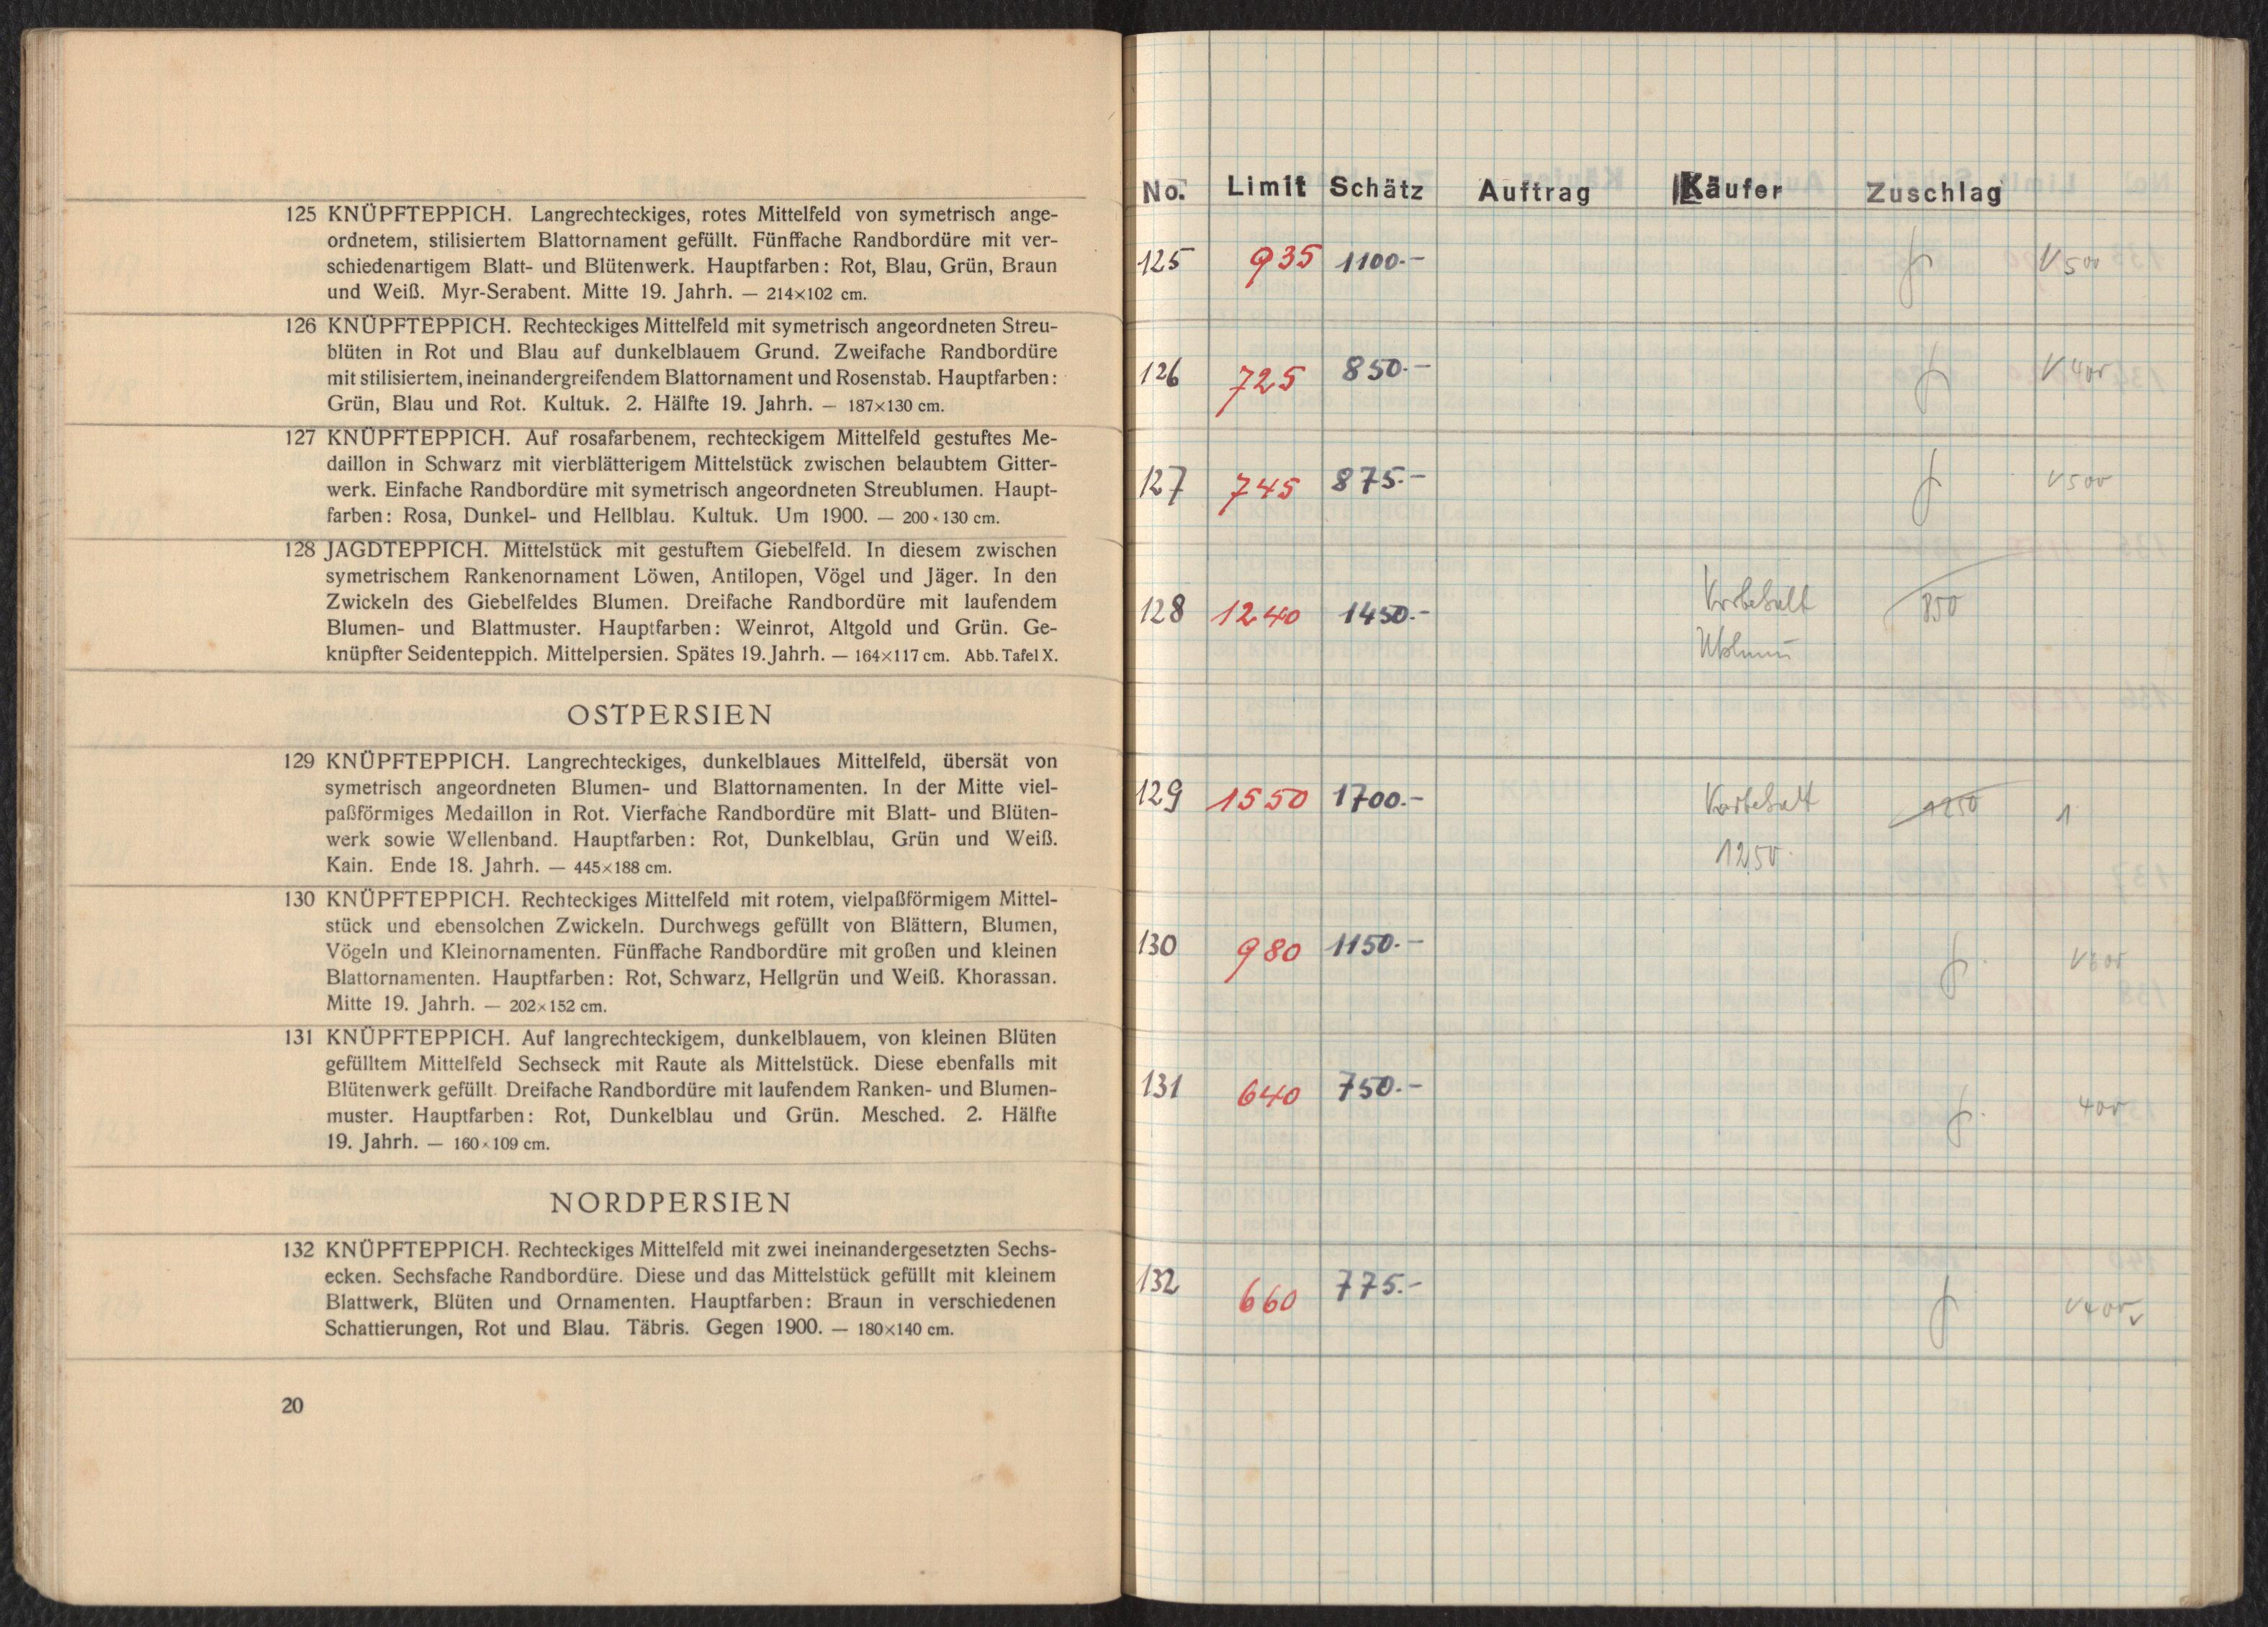 125 KNÜPFTEPPICH. Langrechteckiges, rotes Mittelfeld von symetrisch ange-
ordnetem, stilisiertem Blattornament gefüllt. Fünffache Randbordüre mit ver-
schiedenartigem Blatt- und Blütenwerk. Hauptfarben: Rot, Blau, Grün, Braun
und Weiß. Myr-Serabent. Mitte 19. Jahrh. — 214×102 cm.
126 KNÜPFTEPPICH. Rechteckiges Mittelfeld mit symetrisch angeordneten Streu-
blüten in Rot und Blau auf dunkelblauem Grund. Zweifache Randbordüre
mit stilisiertem, ineinandergreifendem Blattornament und Rosenstab. Hauptfarben:
Grün, Blau und Rot. Kultuk. 2. Hälfte 19. Jahrh. — 187×130 cm.
127 KNÜPFTEPPICH. Auf rosafarbenem, rechteckigem Mittelfeld gestuftes Me-
daillon in Schwarz mit vierblätterigem Mittelstück zwischen belaubtem Gitter-
werk. Einfache Randbordüre mit symetrisch angeordneten Streublumen. Haupt-
farben: Rosa, Dunkel- und Hellblau. Kultuk. Um 1900. — 200×130 cm.
128 JAGDTEPPICH. Mittelstück mit gestuftem Giebelfeld. In diesem zwischen
symetrischem Rankenornament Löwen, Antilopen, Vögel und Jäger. In den
Zwickeln des Giebelfeldes Blumen. Dreifache Randbordüre mit laufendem
Blumen- und Blattmuster. Hauptfarben: Weinrot, Altgold und Grün. Ge-
knüpfter Seidenteppich. Mittelpersien. Spätes 19. Jahrh. — 164×117 cm. Abb. Tafel X.
OSTPERSIEN
129 KNÜPFTEPPICH. Langrechteckiges, dunkelblaues Mittelfeld, übersät von
symetrisch angeordneten Blumen- und Blattornamenten. In der Mitte viel-
paßförmiges Medaillon in Rot. Vierfache Randbordüre mit Blatt- und Blüten-
werk sowie Wellenband. Hauptfarben: Rot, Dunkelblau, Grün und Weiß.
Kain. Ende 18. Jahrh. — 445×188 cm.
130 KNÜPFTEPPICH. Rechteckiges Mittelfeld mit rotem, vielpaßförmigem Mittel-
stück und ebensolchen Zwickeln. Durchwegs gefüllt von Blättern, Blumen,
Vögeln und Kleinornamenten. Fünffache Randbordüre mit großen und kleinen
Blattornamenten. Hauptfarben: Rot, Schwarz, Hellgrün und Weiß. Khorassan.
Mitte 19. Jahrh. — 202×152 cm.
131 KNÜPFTEPPICH. Auf langrechteckigem, dunkelblauem, von kleinen Blüten
gefülltem Mittelfeld Sechseck mit Raute als Mittelstück. Diese ebenfalls mit
Blütenwerk gefüllt. Dreifache Randbordüre mit laufendem Ranken- und Blumen-
muster. Hauptfarben: Rot, Dunkelblau und Grün. Mesched. 2. Hälfte
19. Jahrh. — 160×109 cm.
NORDPERSIEN
132 KNÜPFTEPPICH. Rechteckiges Mittelfeld mit zwei ineinandergesetzten Sechs-
ecken. Sechsfache Randbordüre. Diese und das Mittelstück gefüllt mit kleinem
Blattwerk, Blüten und Ornamenten. Hauptfarben: Braun in verschiedenen
Schattierungen, Rot und Blau. Täbris. Gegen 1900. — 180×140 cm.
20
No. Limit Schätz Auftrag Käufer Zuschlag
125 935 1100.- V 500
126 725 850.- V 400
127 745 875.- V 500
128 1240 1450.- Vorbehalt 850
129 1550 1700.- Vorbehalt 1250 1
1250.
130 980 1150.-
131 640 750.- 400
132 660 775.- V 400